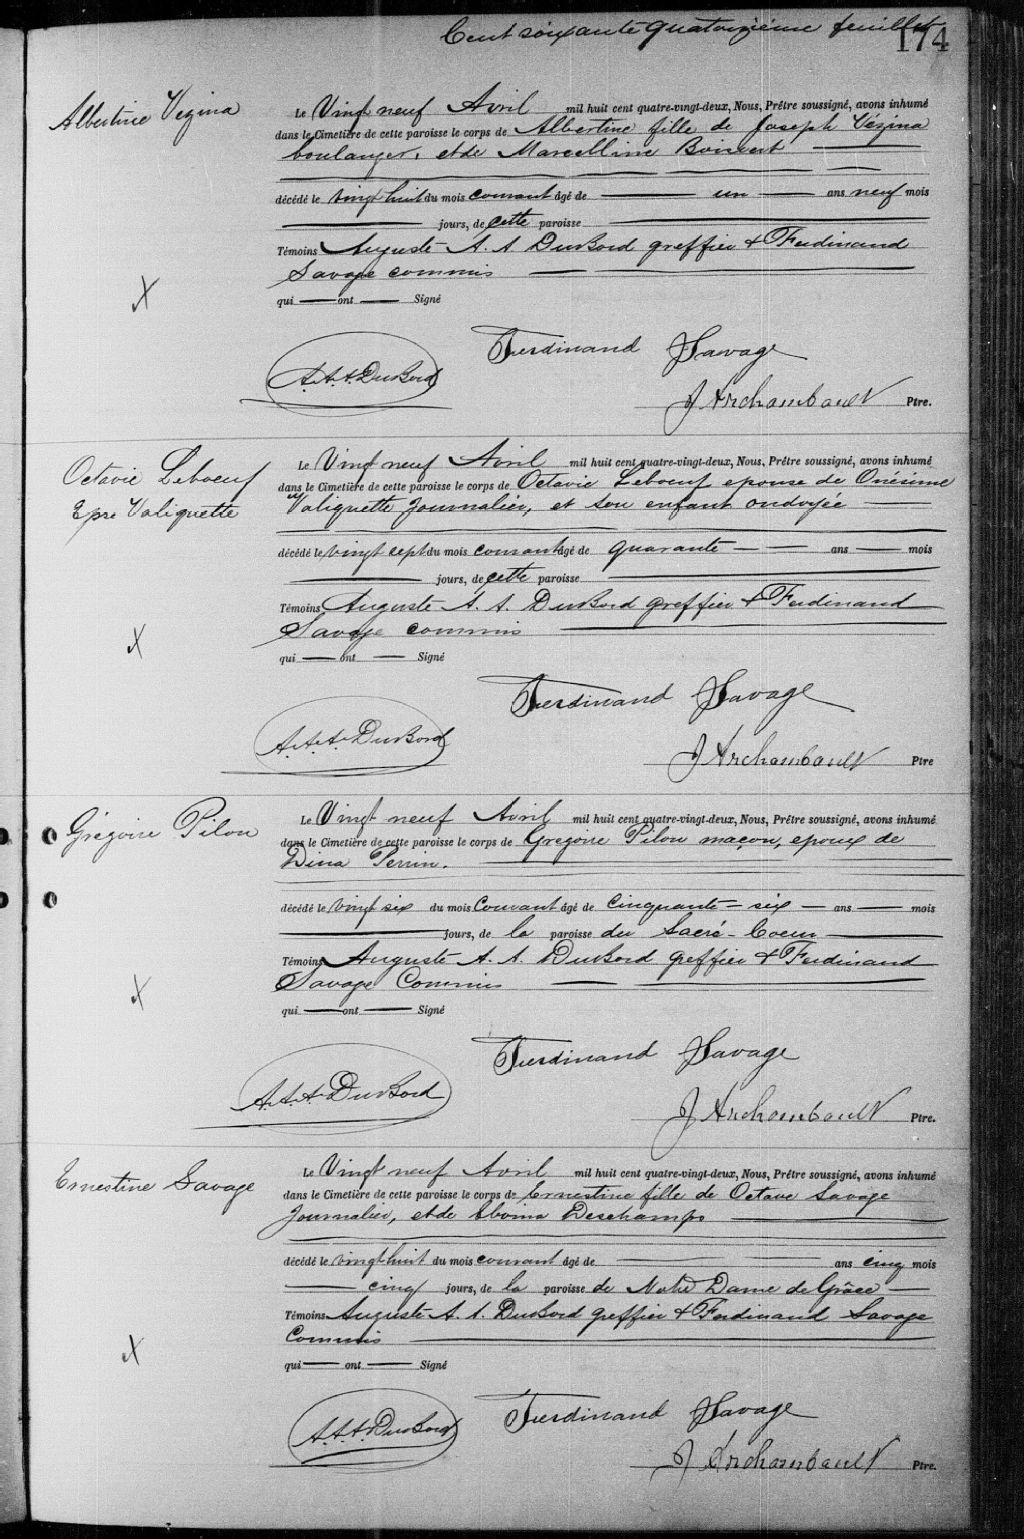 Cent soixante quatorzième feuillet
174
Albertine Vezina
Le Vingt neuf Avril mil huit cent quatre-vingt-deux, Nous, Prêtre soussigné, avons inhumé
dans le Cimetière de cette paroisse le corps de Albertine fille de Joseph Vézina
boulanger, et de Marcelline Boisvert
décédé le vingt huit du mois courant âgé de un ans neuf mois
jours, de cette paroisse
Témoins Auguste A. A DuBord greffier & Ferdinand
Savage commis
qui ont Signé
X
Ferdinand Savage
A.A.A. DuBord
J Archambault Ptre.
Octavie Leboeuf
Epse Valiquette
Le Vingt neuf Avril mil huit cent quatre-vingt-deux, Nous, Prêtre soussigné, avons inhumé
dans le Cimetière de cette paroisse le corps de Octavie Leboeuf epouse de Onésime
Valiquette Journalier, et son enfant ondoyée
décédé le vingt sept du mois courant âgé de quarante ans mois
jours, de cette paroisse
Témoins Auguste A. A. DuBord greffier & Ferdinand
Savage commis
qui ont Signé
X
Ferdinand Savage
A.A.A. DuBord
J Archambault Ptre
Grégoire Pilon
Le Vingt neuf Avril mil huit cent quatre-vingt-deux, Nous, Prêtre soussigné, avons inhumé
dans le Cimetière de cette paroisse le corps de Gregoire Pilon maçon, epoux de
Dina Perrin.
décédé le vingt six du mois Courant âgé de Cinquante-six ans mois
jours, de la paroisse du Sacré-Coeur
Témoins Auguste A. A. DuBord greffier & Ferdinand
Savage Commis
qui ont Signé
X
Ferdinand Savage
A.A.A. DuBord
J Archambault Ptre.
Ernestine Savage
Le Vingt neuf Avril mil huit cent quatre-vingt-deux, Nous, Prêtre soussigné, avons inhumé
dans le Cimetière de cette paroisse le corps de Ernestine fille de Octave Savage
Journalier, et de Deschamps
décédé le vingt huit du mois courant âgé de ans cinq mois
cinq jours, de la paroisse de Notre Dame de Grâce
Témoins Auguste A. A. DuBord greffier & Ferdinand Savage
Commis
qui ont Signé
X
Ferdinand Savage
A.A.A. DuBord
J Archambault Ptre.